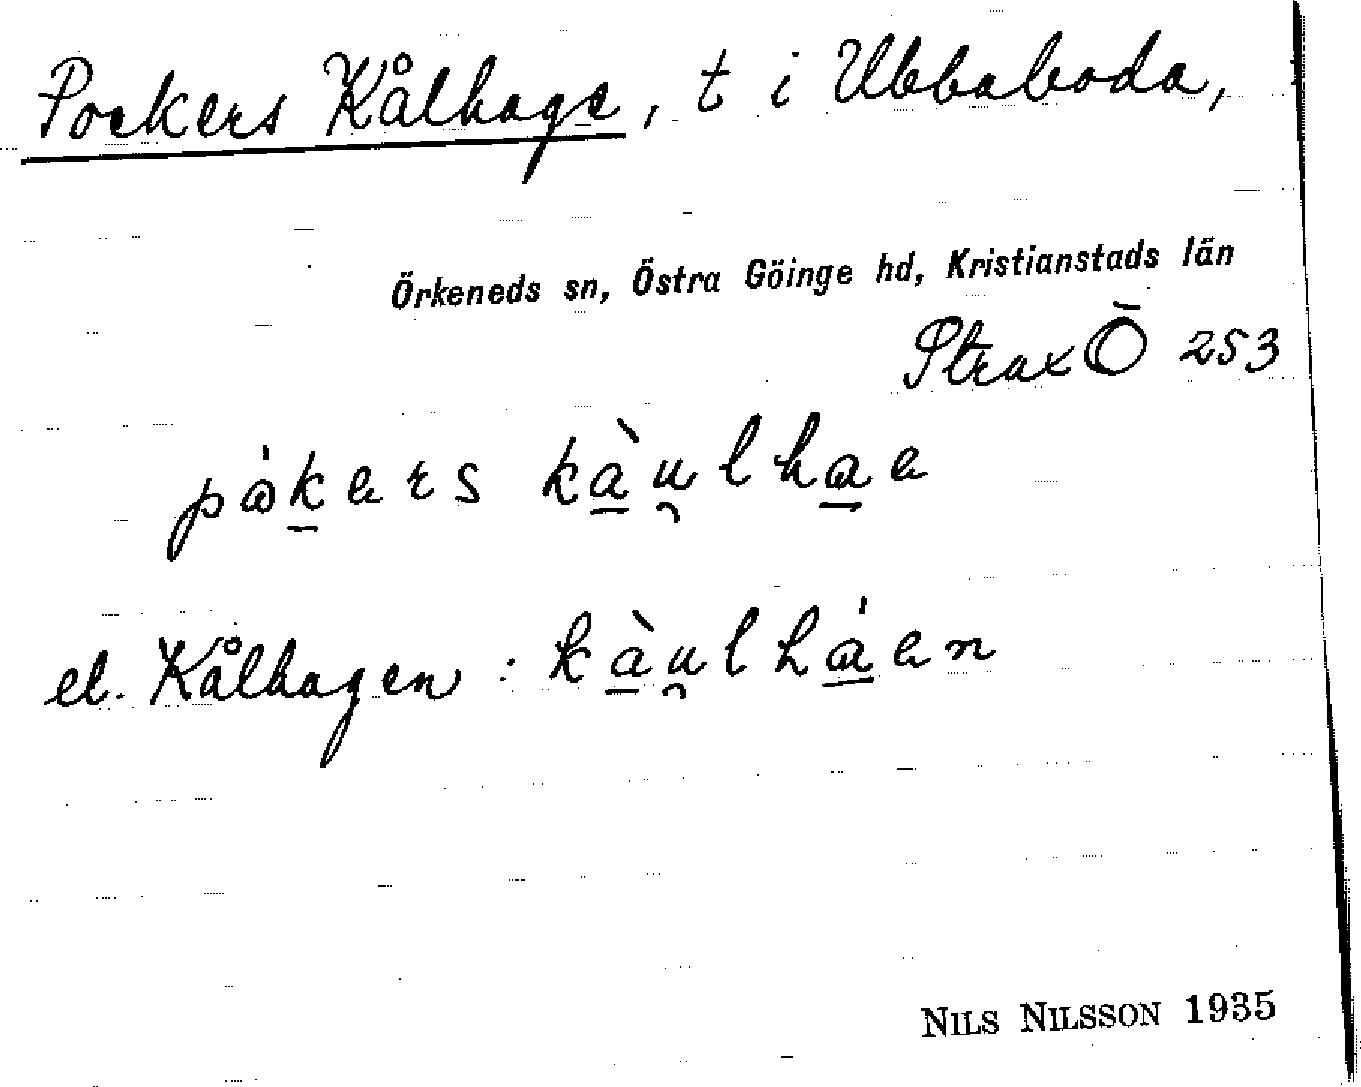 Pockers Kålhage, t i Ubbaboda,
Örkeneds sn, Östra Göinge hd, Kristianstads län
Strax Ö 253
el. Kålhagen :
NILS NILSSON 1935